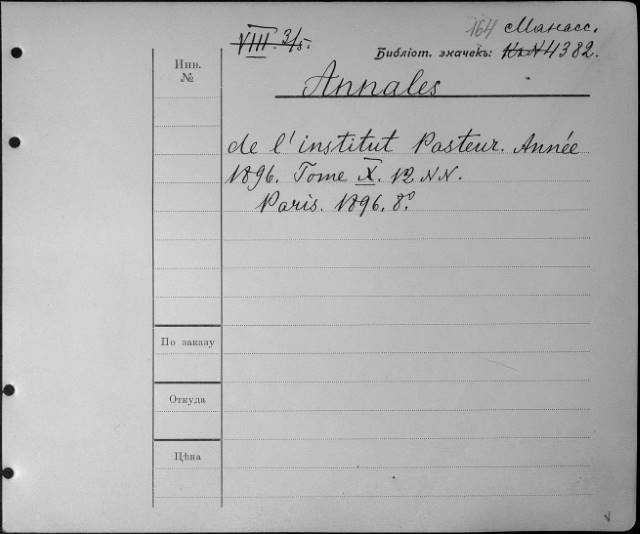 VIII. 3/5. 164 Манасс.
Библіот. значекъ: 4382.
Инв.
№
Annales
de l'institut Pasteur. Année
1896. Tome X. 12 NN.
Paris. 1896. 8º
По заказу
Откуда
Цѣна